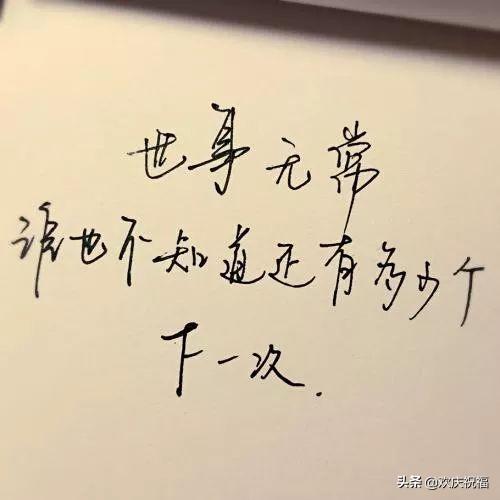 世事无常
谁也不知道还有多少个
下一次.
头条 @欢庆祝福